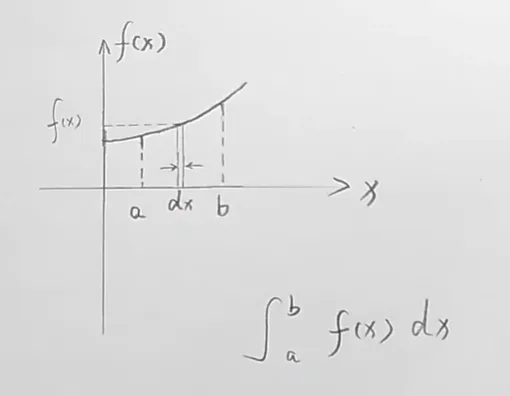 f(x)
f(x)
x
a dx b
∫_a^b f(x) dx